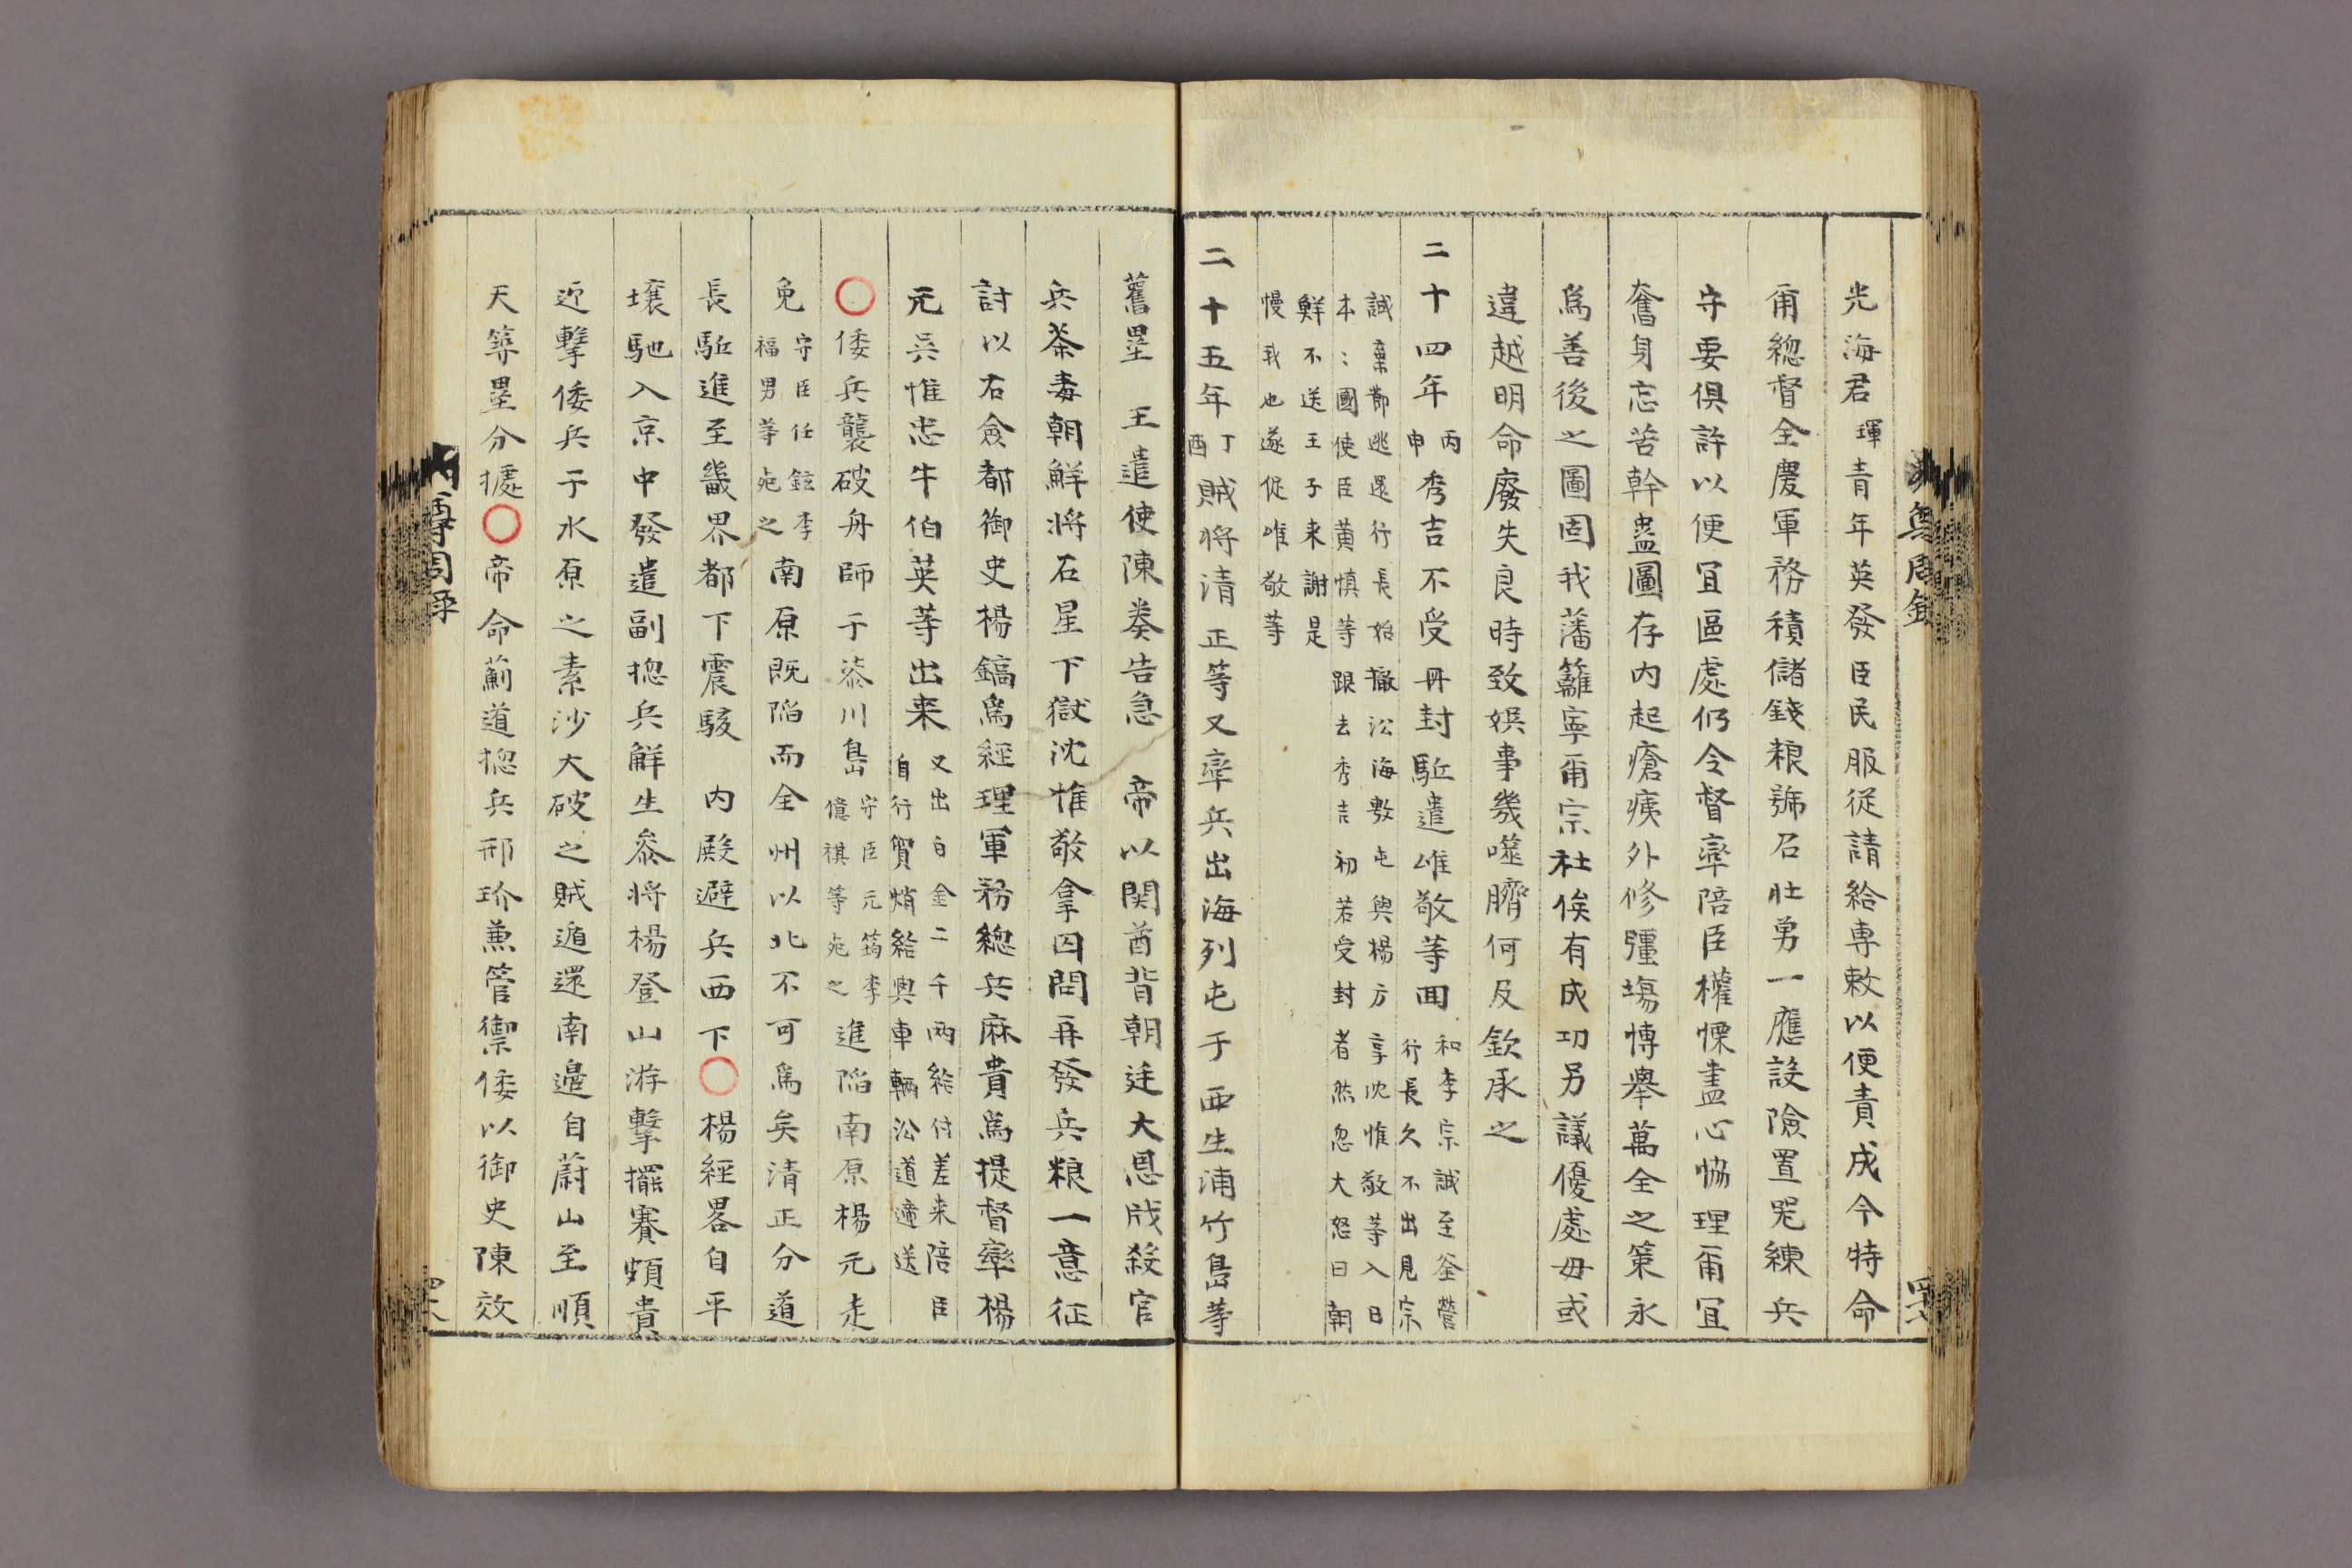 光海君琿青年英發臣民服從請給専敕以便責成今特命
甭總督全慶軍務積儲錢粮號召壯勇一應設險置咒練兵
守要俱許以便冝區處仍令督率陪臣權慄盡心恊理甭冝
奮身忘苦幹蠱圖存内起瘡痍外修彊塲愽舉萬全之策永
爲善後之圖固我藩籬寜甭宗社俟有成功另議優處毋或
違越明命廢失良時致娯事幾噬臍何及欽承之
二十四年丙申秀吉不受冊封駈遣惟敬等囬
和李宗誠至釜營
行長久不出見宗
誠棄節逃還行長始撤㳂海數屯與楊方享沈惟敬等入日
本〻國使臣黄慎等跟去秀吉初若受封者然忽大怒曰朝
鮮不送王子来謝是
慢我也遂促惟敬等
二十五年丁酉賊將清正等又率兵出海列屯于西生浦竹島等
舊壘 王遣使陳奏告急 帝以関酋背朝廷大恩戕殺官
兵荼毒朝鮮將石星下獄沈惟敬拿囚問再發兵粮一意征
討以右僉都御史楊鎬爲經理軍務總兵麻貴爲提督率楊
元吴惟忠牛伯英等出来
又出白金二千兩給付差来陪臣
自行買焇給與車輛㳂道遞送
○倭兵襲破舟師于漆川島
守臣元筠李
億祺等死之
進陷南原楊元走
免
守臣任鉉李
福男等死之
南原既陷而全州以北不可爲矣清正分道
長駈進至畿界都下震駭 内殿避兵西下○楊經畧自平
壤馳入京中發遣副揔兵解生叅将楊登山游擊擺賽頗貴
近擊倭兵于水原之素沙大破之賊遁還南邊自蔚山至順
天築壘分據○帝命薊道揔兵邢玠兼管禦倭以御史陳效